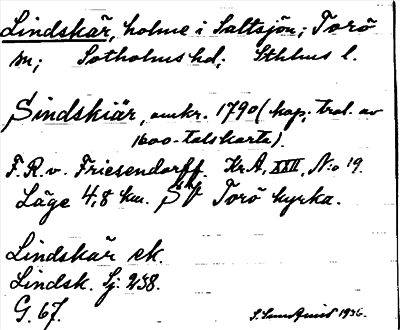 Lindskär, holme i Saltsjön; Torö
sn; Sotholms hd; Sthlms l.
Sindskiär, omkr. 1790 (kop. trol. av
1600-talskarta).
F.R.v. Friesendorff. Kr.A, XXII, N:o 19.
Läge 4,8 km. SV Torö kyrka.
Lindskär ek.
Lindsk. Sj. 238.
G. 67.
S. Lundquist 1936.